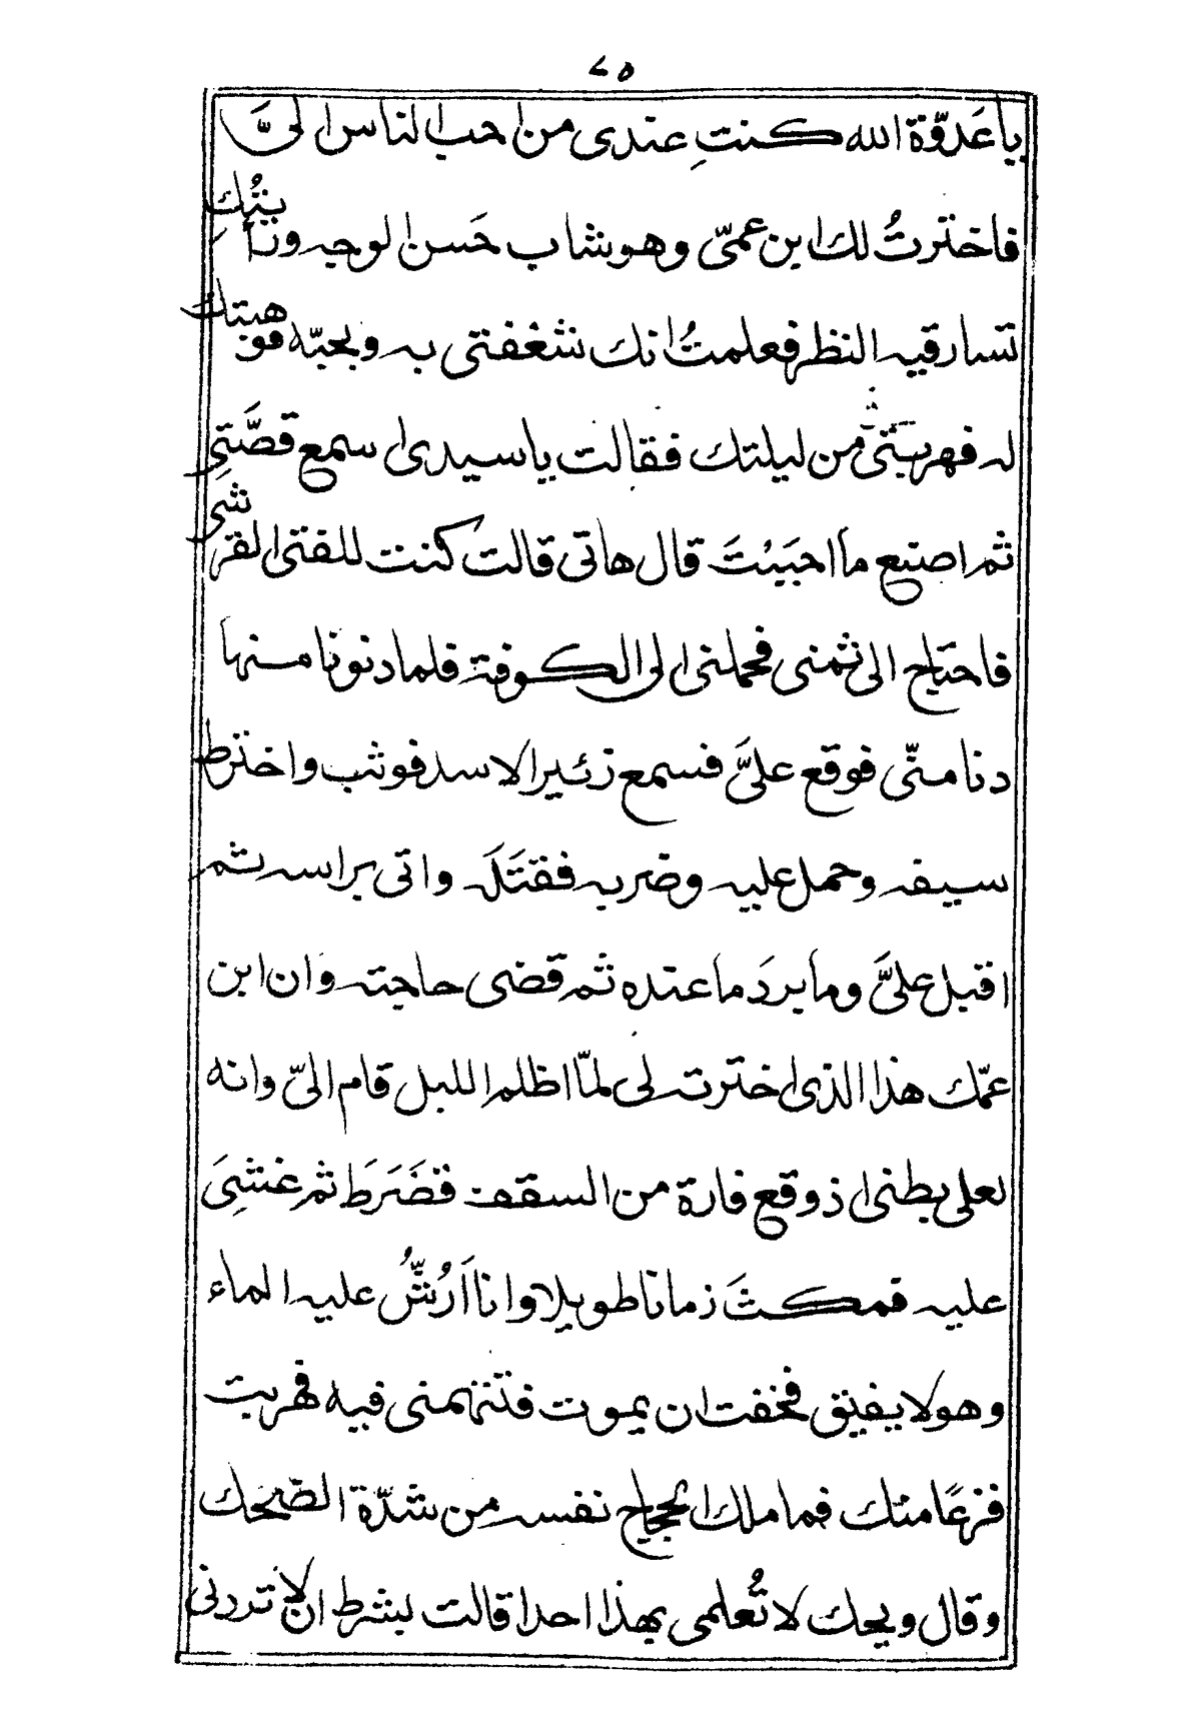 ٧٥
يا عَدوّة الله كنتِ عندى من احب الناس الىَّ
فاخترتُ لك ابن عمىّ وهو شاب حَسن الوجه ورأيتُكِ
تسارقيه النظر فعلمتُ انك شغفتى به وبحبّه فوهبتك
له فهربتى من ليلتك فقالت يا سيدى اسمع قصَّتى
ثم اصنع ما احبَبْتَ قال هاتى قالت كنت للفتى القرشى
فاحتاج الى ثمنى فحملنى الى الكوفة فلما دنونا منها
دنا منّى فوقع علىَّ فسمع زئير الاسد فوثب واخترط
سيفه وحمل عليه وضربه فقتَلَه واتى براسه ثم
اقبل علىَّ وما بردَ ما عنده ثم قضى حاجته وان ابن
عمّك هذا الذى اخترته لى لمّا اظلم الليل قام الىّ وانه
لعلى بطنى اذ وقع فارة من السقف فضَرَطَ ثم غشِىَ
عليه فمكثَ زمانا طويلا وانا اَرُشُّ عليه الماء
وهو لا يفيق فخفت ان يموت فتتهمنى فيه فهربت
فزعًا منك فما ملك الحجاج نفسه من شدّة الضحك
وقال ويحك لا تُعلمى بهذا احدا قالت بشرط ان لا تردنى